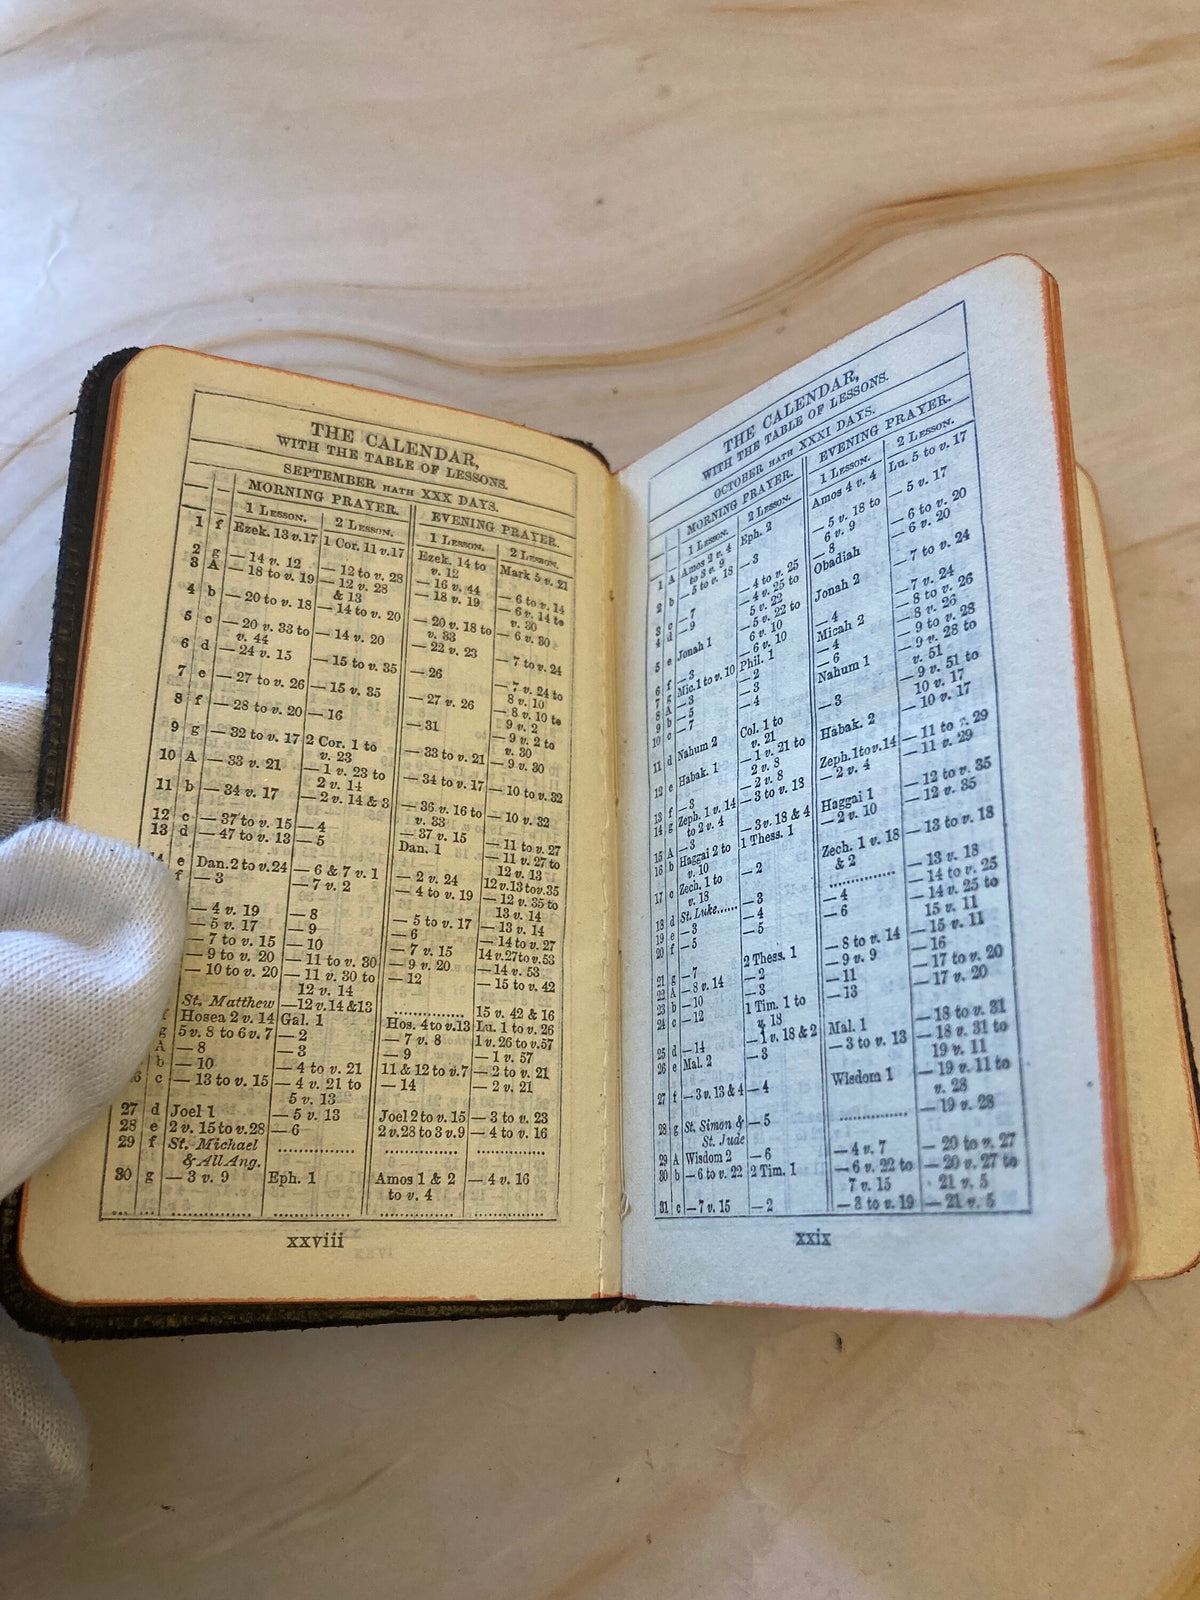 THE CALENDAR,
WITH THE TABLE OF LESSONS.
SEPTEMBER HATH XXX DAYS.
MORNING PRAYER. EVENING PRAYER.
1 LESSON. 2 LESSON. 1 LESSON. 2 LESSON.
1 f Ezek. 13 v. 17 1 Cor. 11 v. 17 Ezek. 14 to v. 12 Mark 5 v. 21
2 g — 14 v. 12 — 12 to v. 28 — 16 v. 44 — 6 to v. 14
3 A — 18 to v. 19 — 12 v. 28 & 13 — 18 v. 19 — 6 v. 14 to v. 30
4 b — 20 to v. 18 — 14 to v. 20 — 20 v. 18 to v. 33 — 6 v. 30
5 c — 20 v. 33 to v. 44 — 14 v. 20 — 22 v. 23 — 7 to v. 24
6 d — 24 v. 15 — 15 to v. 35 — 26 — 7 v. 24 to 8 v. 10
7 e — 27 to v. 26 — 15 v. 35 — 27 v. 26 — 8 v. 10 to 9 v. 2
8 f — 28 to v. 20 — 16 — 31 — 9 v. 2 to v. 30
9 g — 32 to v. 17 2 Cor. 1 to v. 23 — 33 to v. 21 — 9 v. 30
10 A — 33 v. 21 — 1 v. 23 to 2 v. 14 — 34 to v. 17 — 10 to v. 32
11 b — 34 v. 17 — 2 v. 14 & 3 — 36 v. 16 to v. 33 — 10 v. 32
12 c — 37 to v. 15 — 4 — 37 v. 15 — 11 to v. 27
13 d — 47 to v. 13 — 5 Dan. 1 — 11 v. 27 to 12 v. 13
e Dan. 2 to v. 24 — 6 & 7 v. 1 — 2 v. 24 12 v. 13 to v. 35
f — 3 — 7 v. 2 — 4 to v. 19 — 12 v. 35 to 13 v. 14
— 4 v. 19 — 8 — 5 to v. 17 — 13 v. 14
— 5 v. 17 — 9 — 6 — 14 to v. 27
— 7 to v. 15 — 10 — 7 v. 15 14 v. 27 to v. 53
— 9 to v. 20 — 11 to v. 30 — 9 v. 20 — 14 v. 53
— 10 to v. 20 — 11 v. 30 to 12 v. 14 — 12 — 15 to v. 42
St. Matthew — 12 v. 14 & 13 .............. 15 v. 42 & 16
f Hosea 2 v. 14 Gal. 1 Hos. 4 to v. 13 Lu. 1 to v. 26
g 5 v. 8 to 6 v. 7 — 2 — 7 v. 8 1 v. 26 to v. 57
A — 8 — 3 — 9 — 1 v. 57
b — 10 — 4 to v. 21 11 & 12 to v. 7 — 2 to v. 21
6 c — 13 to v. 15 — 4 v. 21 to 5 v. 13 — 14 — 2 v. 21
27 d Joel 1 — 5 v. 13 Joel 2 to v. 15 — 3 to v. 23
28 e 2 v. 15 to v. 28 — 6 2 v. 28 to 3 v. 9 — 4 to v. 16
29 f St. Michael & All Ang. .............. .............. ..............
30 g — 3 v. 9 Eph. 1 Amos 1 & 2 to v. 4 — 4 v. 16
xxviii
THE CALENDAR,
WITH THE TABLE OF LESSONS.
OCTOBER HATH XXXI DAYS.
MORNING PRAYER. EVENING PRAYER.
1 LESSON. 2 LESSON. 1 LESSON. 2 LESSON.
1 A Amos 2 v. 4 to 3 v. 9 Eph. 2 Amos 4 v. 4 Lu. 5 to v. 17
2 b — 5 to v. 18 — 3 — 5 v. 18 to 6 v. 9 — 5 v. 17
3 c — 7 — 4 to v. 25 — 8 — 6 to v. 20
4 d — 9 — 4 v. 25 to 5 v. 22 Obadiah — 6 v. 20
5 e Jonah 1 — 5 v. 22 to 6 v. 10 Jonah 2 — 7 to v. 24
6 f — 3 — 6 v. 10 — 4 — 7 v. 24
7 g Mic. 1 to v. 10 Phil. 1 Micah 2 — 8 to v. 26
8 A — 3 — 2 — 4 — 8 v. 26
9 b — 5 — 3 — 6 — 9 to v. 28
10 c — 7 — 4 Nahum 1 — 9 v. 28 to v. 51
11 d Nahum 2 Col. 1 to v. 21 — 3 — 9 v. 51 to 10 v. 17
12 e Habak. 1 — 1 v. 21 to 2 v. 8 Habak. 2 — 10 v. 17
13 f — 3 — 2 v. 8 Zeph. 1 to v. 14 — 11 to v. 29
14 g Zeph. 1 v. 14 to 2 v. 4 — 3 to v. 18 — 2 v. 4 — 11 v. 29
15 A — 3 — 3 v. 18 & 4 Haggai 1 — 12 to v. 35
16 b Haggai 2 to v. 10 1 Thess. 1 — 2 v. 10 — 12 v. 35
17 c Zech. 1 to v. 18 — 2 Zech. 1 v. 18 & 2 — 13 to v. 18
18 d St. Luke...... — 3 .............. — 13 v. 18
19 e — 3 — 4 — 4 — 14 to v. 25
20 f — 5 — 5 — 6 — 14 v. 25 to 15 v. 11
21 g — 7 2 Thess. 1 — 8 to v. 14 — 15 v. 11
22 A — 8 v. 14 — 2 — 9 v. 9 — 16
23 b — 10 — 3 — 11 — 17 to v. 20
24 c — 12 1 Tim. 1 to v. 18 — 13 — 17 v. 20
25 d — 14 — 1 v. 18 & 2 Mal. 1 — 18 to v. 31
26 e Mal. 2 — 3 — 3 to v. 13 — 18 v. 31 to 19 v. 11
27 f — 3 v. 13 & 4 — 4 Wisdom 1 — 19 v. 11 to v. 28
28 g St. Simon & St. Jude — 5 .............. — 19 v. 28
29 A Wisdom 2 — 6 — 4 v. 7 — 20 to v. 27
30 b — 6 to v. 22 2 Tim. 1 — 6 v. 22 to 7 v. 15 — 20 v. 27 to 21 v. 5
31 c — 7 v. 15 — 2 — 8 to v. 19 — 21 v. 5
xxix